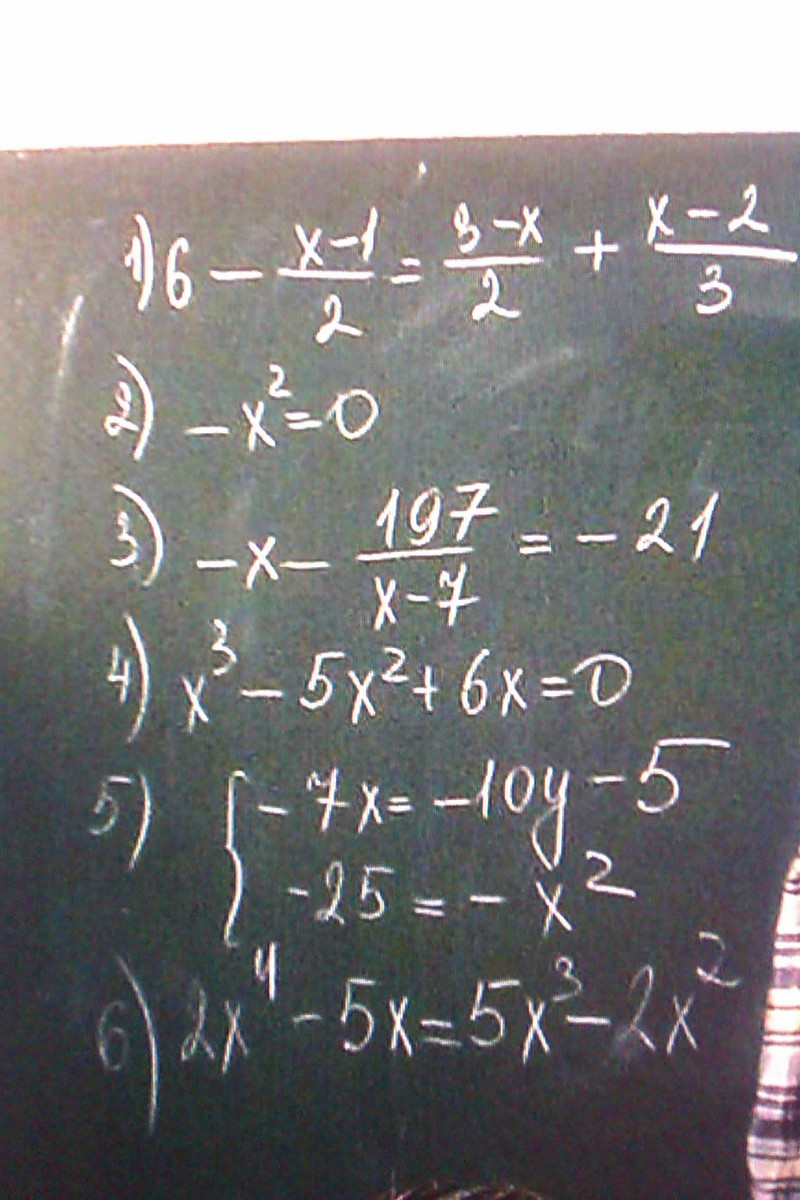 1) 6 - \frac{x-1}{2} = \frac{3-x}{2} + \frac{x-2}{3}
2) -x² = 0
3) -x - \frac{197}{x-7} = -21
4) x³ - 5x² + 6x = 0
5) { -7x = -10y - 5
-25 = -x²
6) 2x⁴ - 5x = 5x³ - 2x²